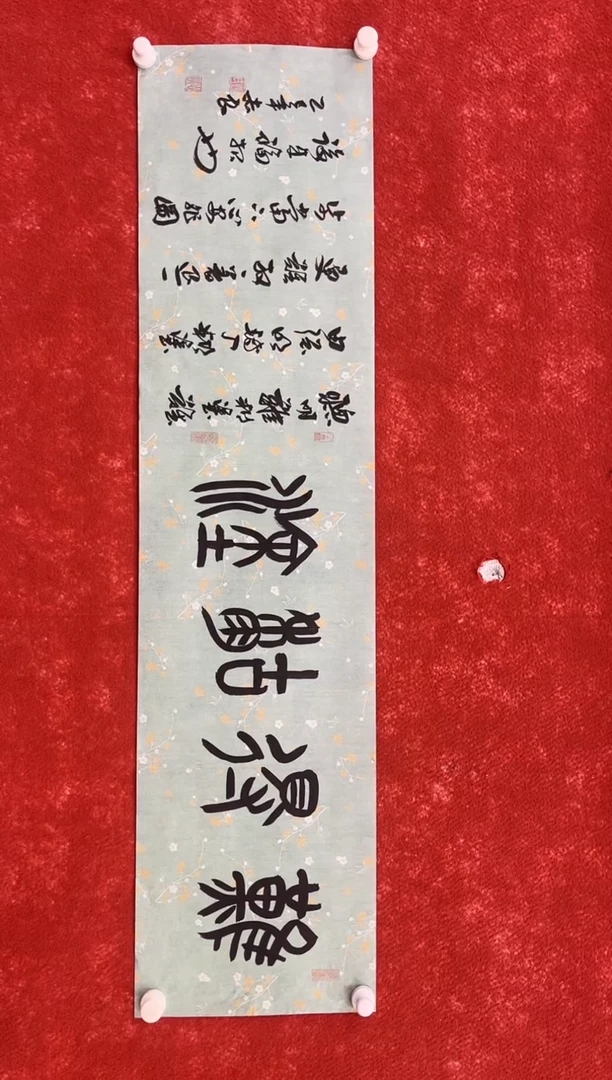 難得糊塗
聰明難糊塗難
由聰明轉入糊塗
更難放一著退一
步當下心安非圖
後來福報也
乙巳年